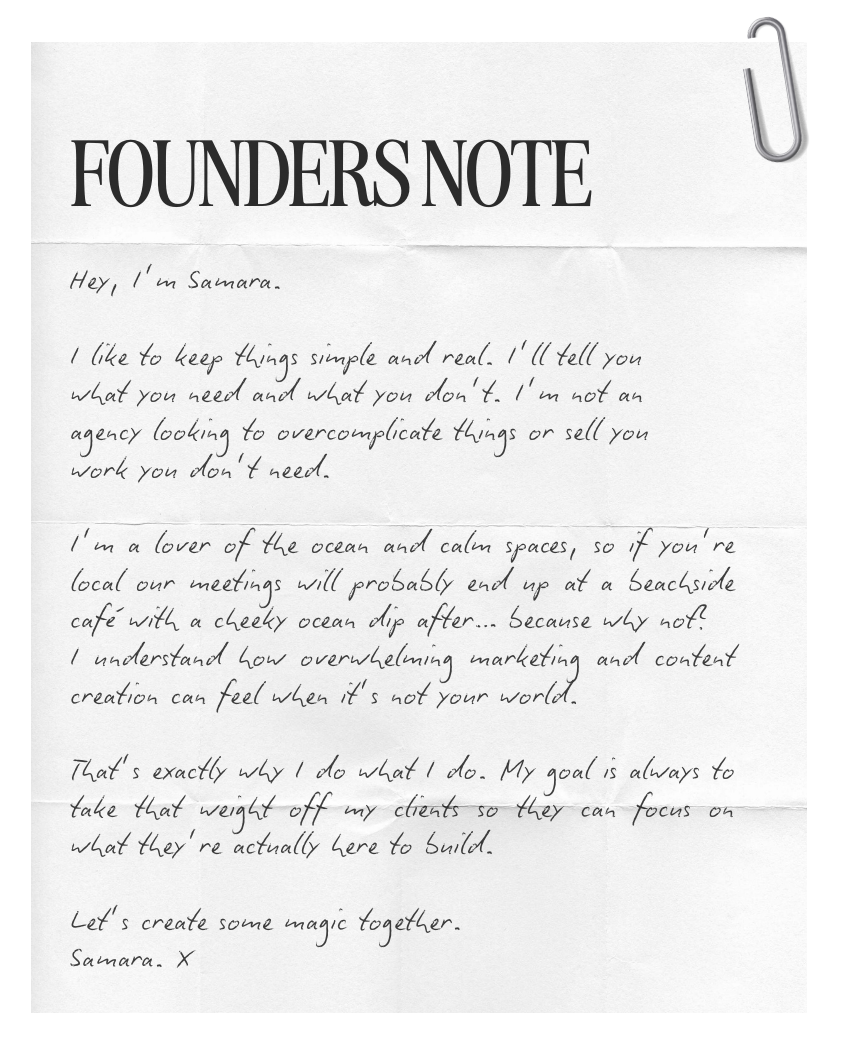 FOUNDERS NOTE
Hey, I'm Samara.
I like to keep things simple and real. I'll tell you
what you need and what you don't. I'm not an
agency looking to overcomplicate things or sell you
work you don't need.
I'm a lover of the ocean and calm spaces, so if you're
local our meetings will probably end up at a beachside
café with a cheeky ocean dip after... because why not?
I understand how overwhelming marketing and content
creation can feel when it's not your world.
That's exactly why I do what I do. My goal is always to
take that weight off my clients so they can focus on
what they're actually here to build.
Let's create some magic together.
Samara. X